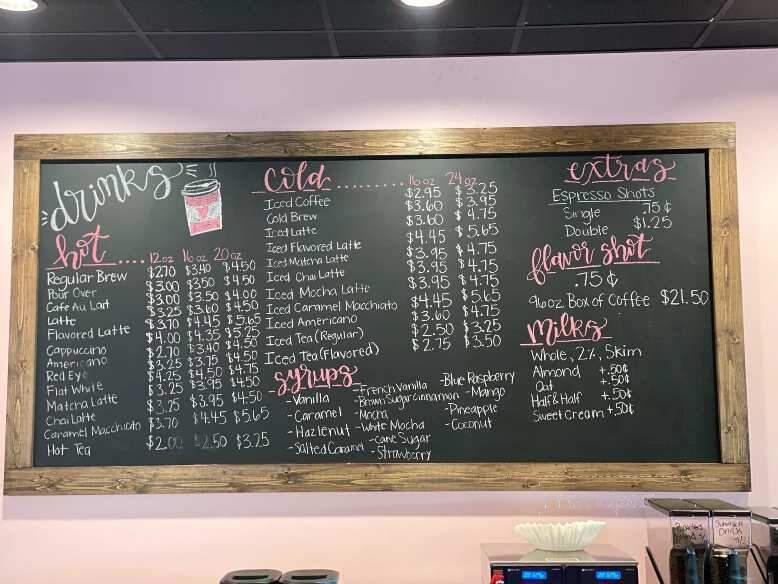 drinks
hot .... 12oz 16oz 20oz
Regular Brew $2.70 $3.40 $4.50
Pour Over $3.00 $3.50 $4.50
Cafe Au Lait $3.00 $3.50 $4.00
Latte $3.25 $3.60 $4.50
Flavored Latte $3.70 $4.45 $5.65
Cappuccino $4.00 $4.35 $5.25
Americano $2.70 $3.40 $4.50
Red Eye $3.25 $3.75 $4.50
Flat White $4.25 $4.50 $4.75
Matcha Latte $3.25 $3.95 $4.50
Chai Latte $3.25 $3.95 $4.50
Caramel Macchiato $3.70 $4.45 $5.65
Hot Tea $2.00 $2.50 $3.25
cold ......... 16oz 24oz
Iced Coffee $2.95 $3.25
Cold Brew $3.60 $3.95
Iced Latte $3.60 $4.75
Iced Flavored Latte $4.45 $5.65
Iced Matcha Latte $3.95 $4.75
Iced Chai Latte $3.95 $4.75
Iced Mocha Latte $3.95 $4.75
Iced Caramel Macchiato $4.45 $5.65
Iced Americano $3.60 $4.75
Iced Tea (Regular) $2.50 $3.25
Iced Tea (Flavored) $2.75 $3.50
syrups
-Vanilla
-Caramel
-Hazlenut
-Salted Caramel
-French Vanilla
-Brown Sugar Cinnamon
-Mocha
-White Mocha
-Cane Sugar
-Strawberry
-Blue Raspberry
-Mango
-Pineapple
-Coconut
extras
Espresso Shots
Single .75¢
Double $1.25
flavor shot
.75¢
96oz Box of Coffee $21.50
Milks
Whole, 2%, Skim
Almond +.50¢
Oat +.50¢
Half & Half +.50¢
Sweet Cream +.50¢